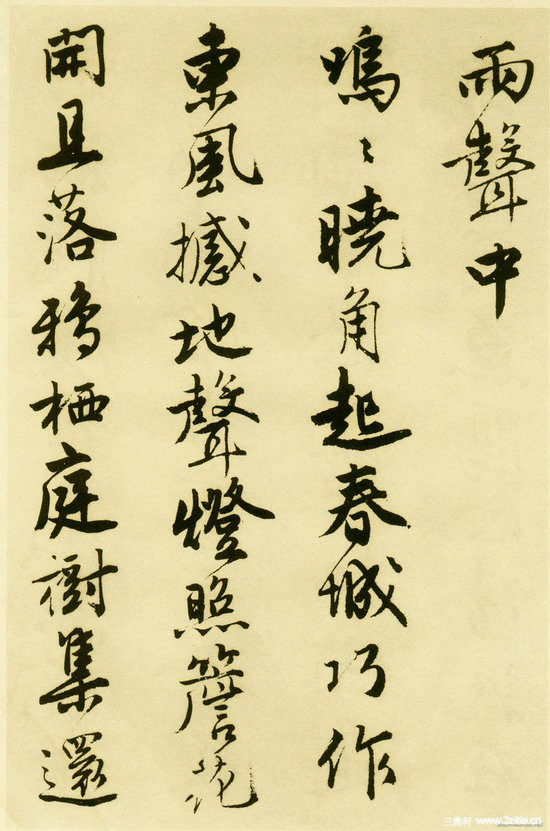 雨聲中
嗚〻曉角起春城巧作
東風撼地聲燈照簷花
開且落鴉栖庭樹集還
www.3zitie.cn